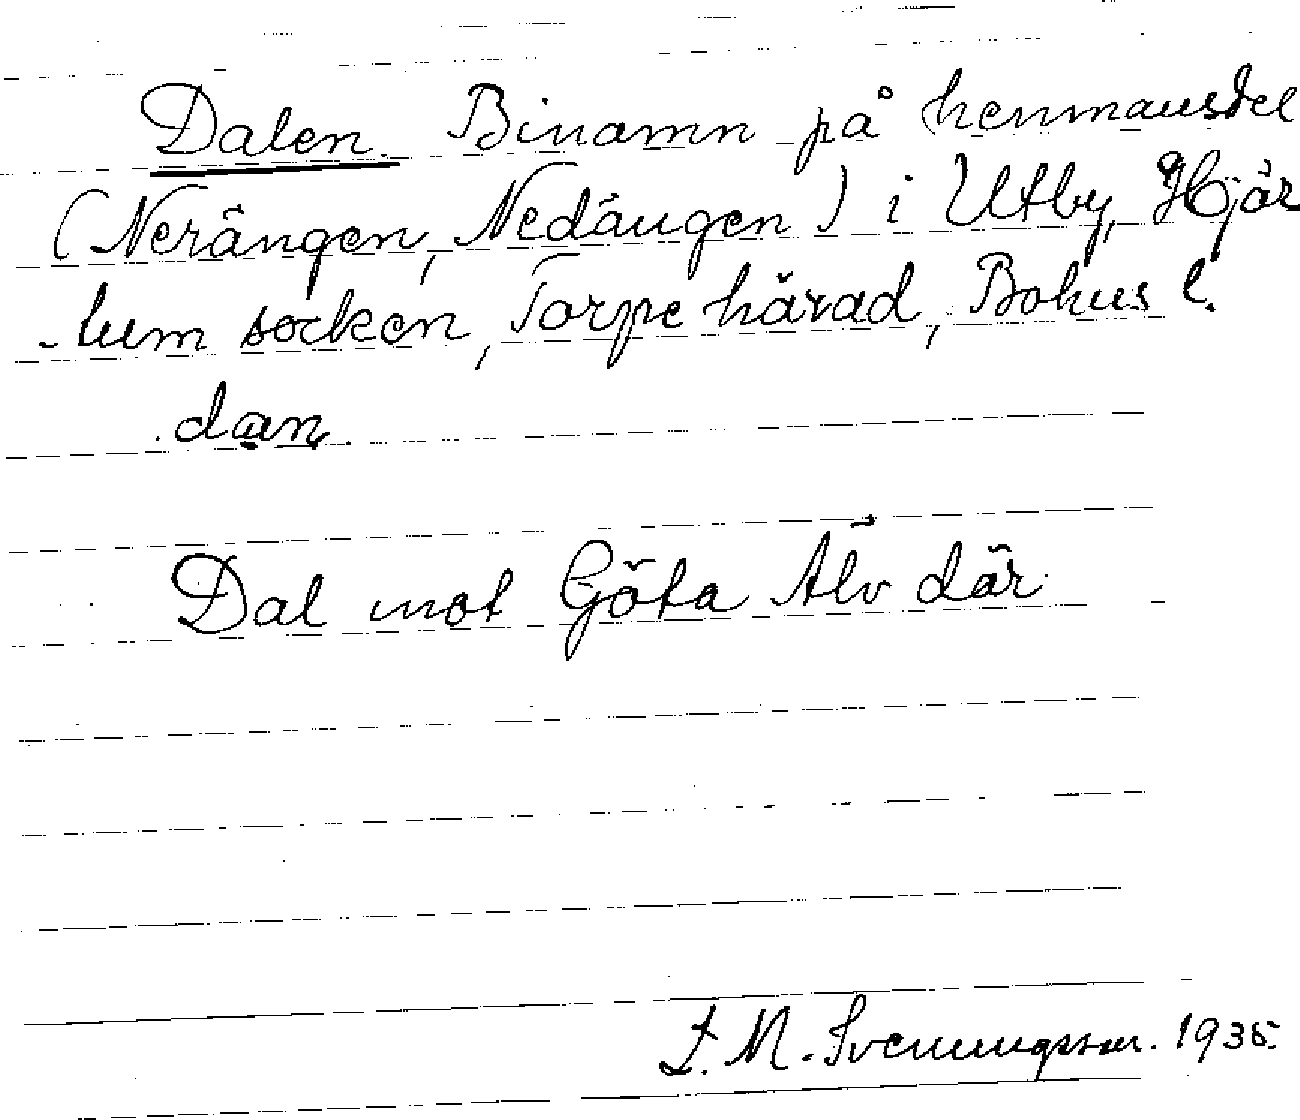 Dalen Binamn på hemmansdel
(Nerängen, Nedängen) i Utby, Hjär
-tum socken, Torpe härad, Bohus l.
dan
Dal mot Göta Älv där
J. M. Svenningsson. 1935.